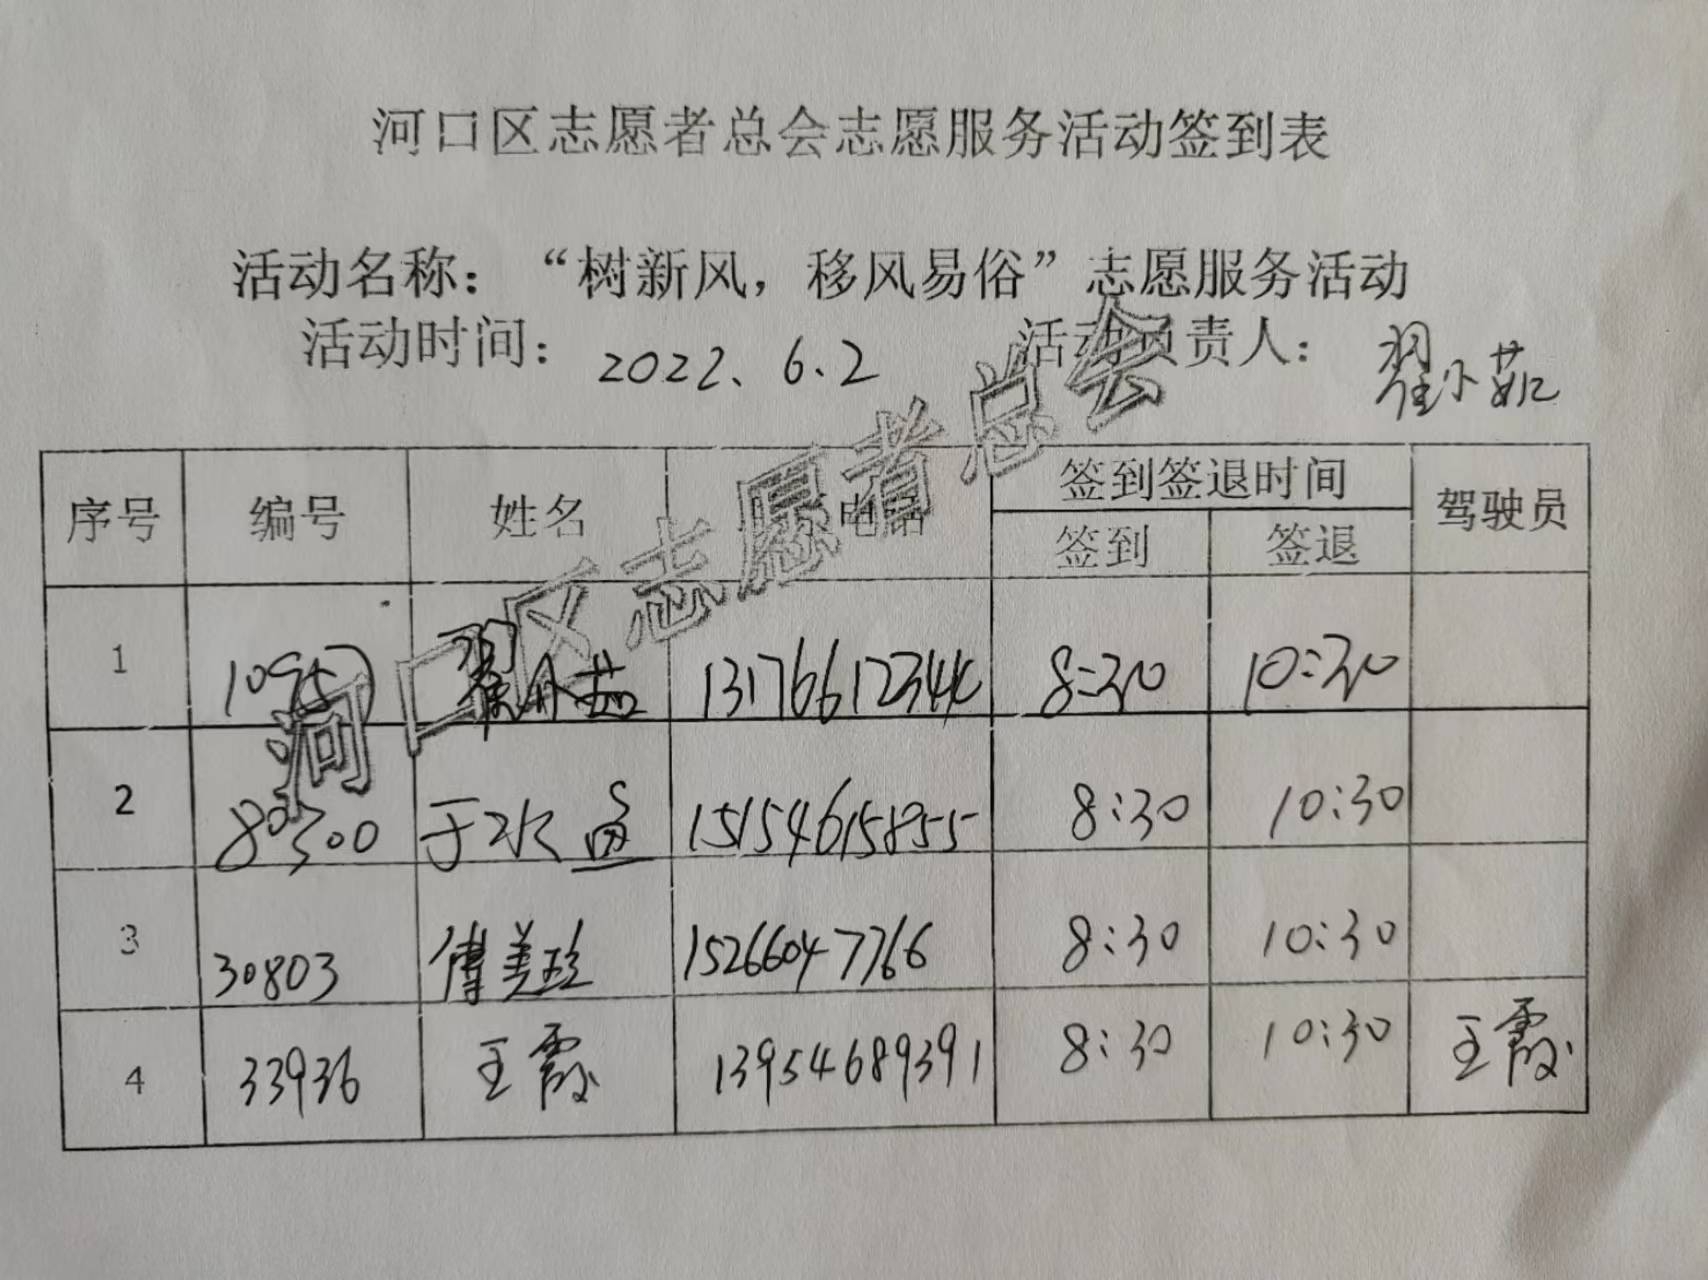 河口区志愿者总会志愿服务活动签到表
活动名称：“树新风，移风易俗”志愿服务活动
活动时间：2022.6.2 活动负责人：翟小茹
序号 编号 姓名 电话 签到签退时间 驾驶员
签到 签退
1 10957 翟小茹 13176612344 8:30 10:30
2 80300 于水 15154615855 8:30 10:30
3 30803 傅美珍 15266047766 8:30 10:30
4 33936 王霞 13954689391 8:30 10:30 王霞
河口区志愿者总会